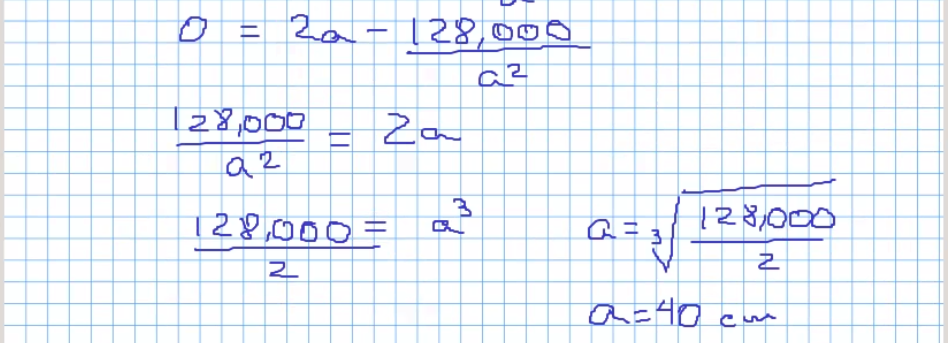 0 = 2a - 128,000/a²
128,000/a² = 2a
128,000/2 = a³
a = ∛(128,000/2)
a = 40 cm